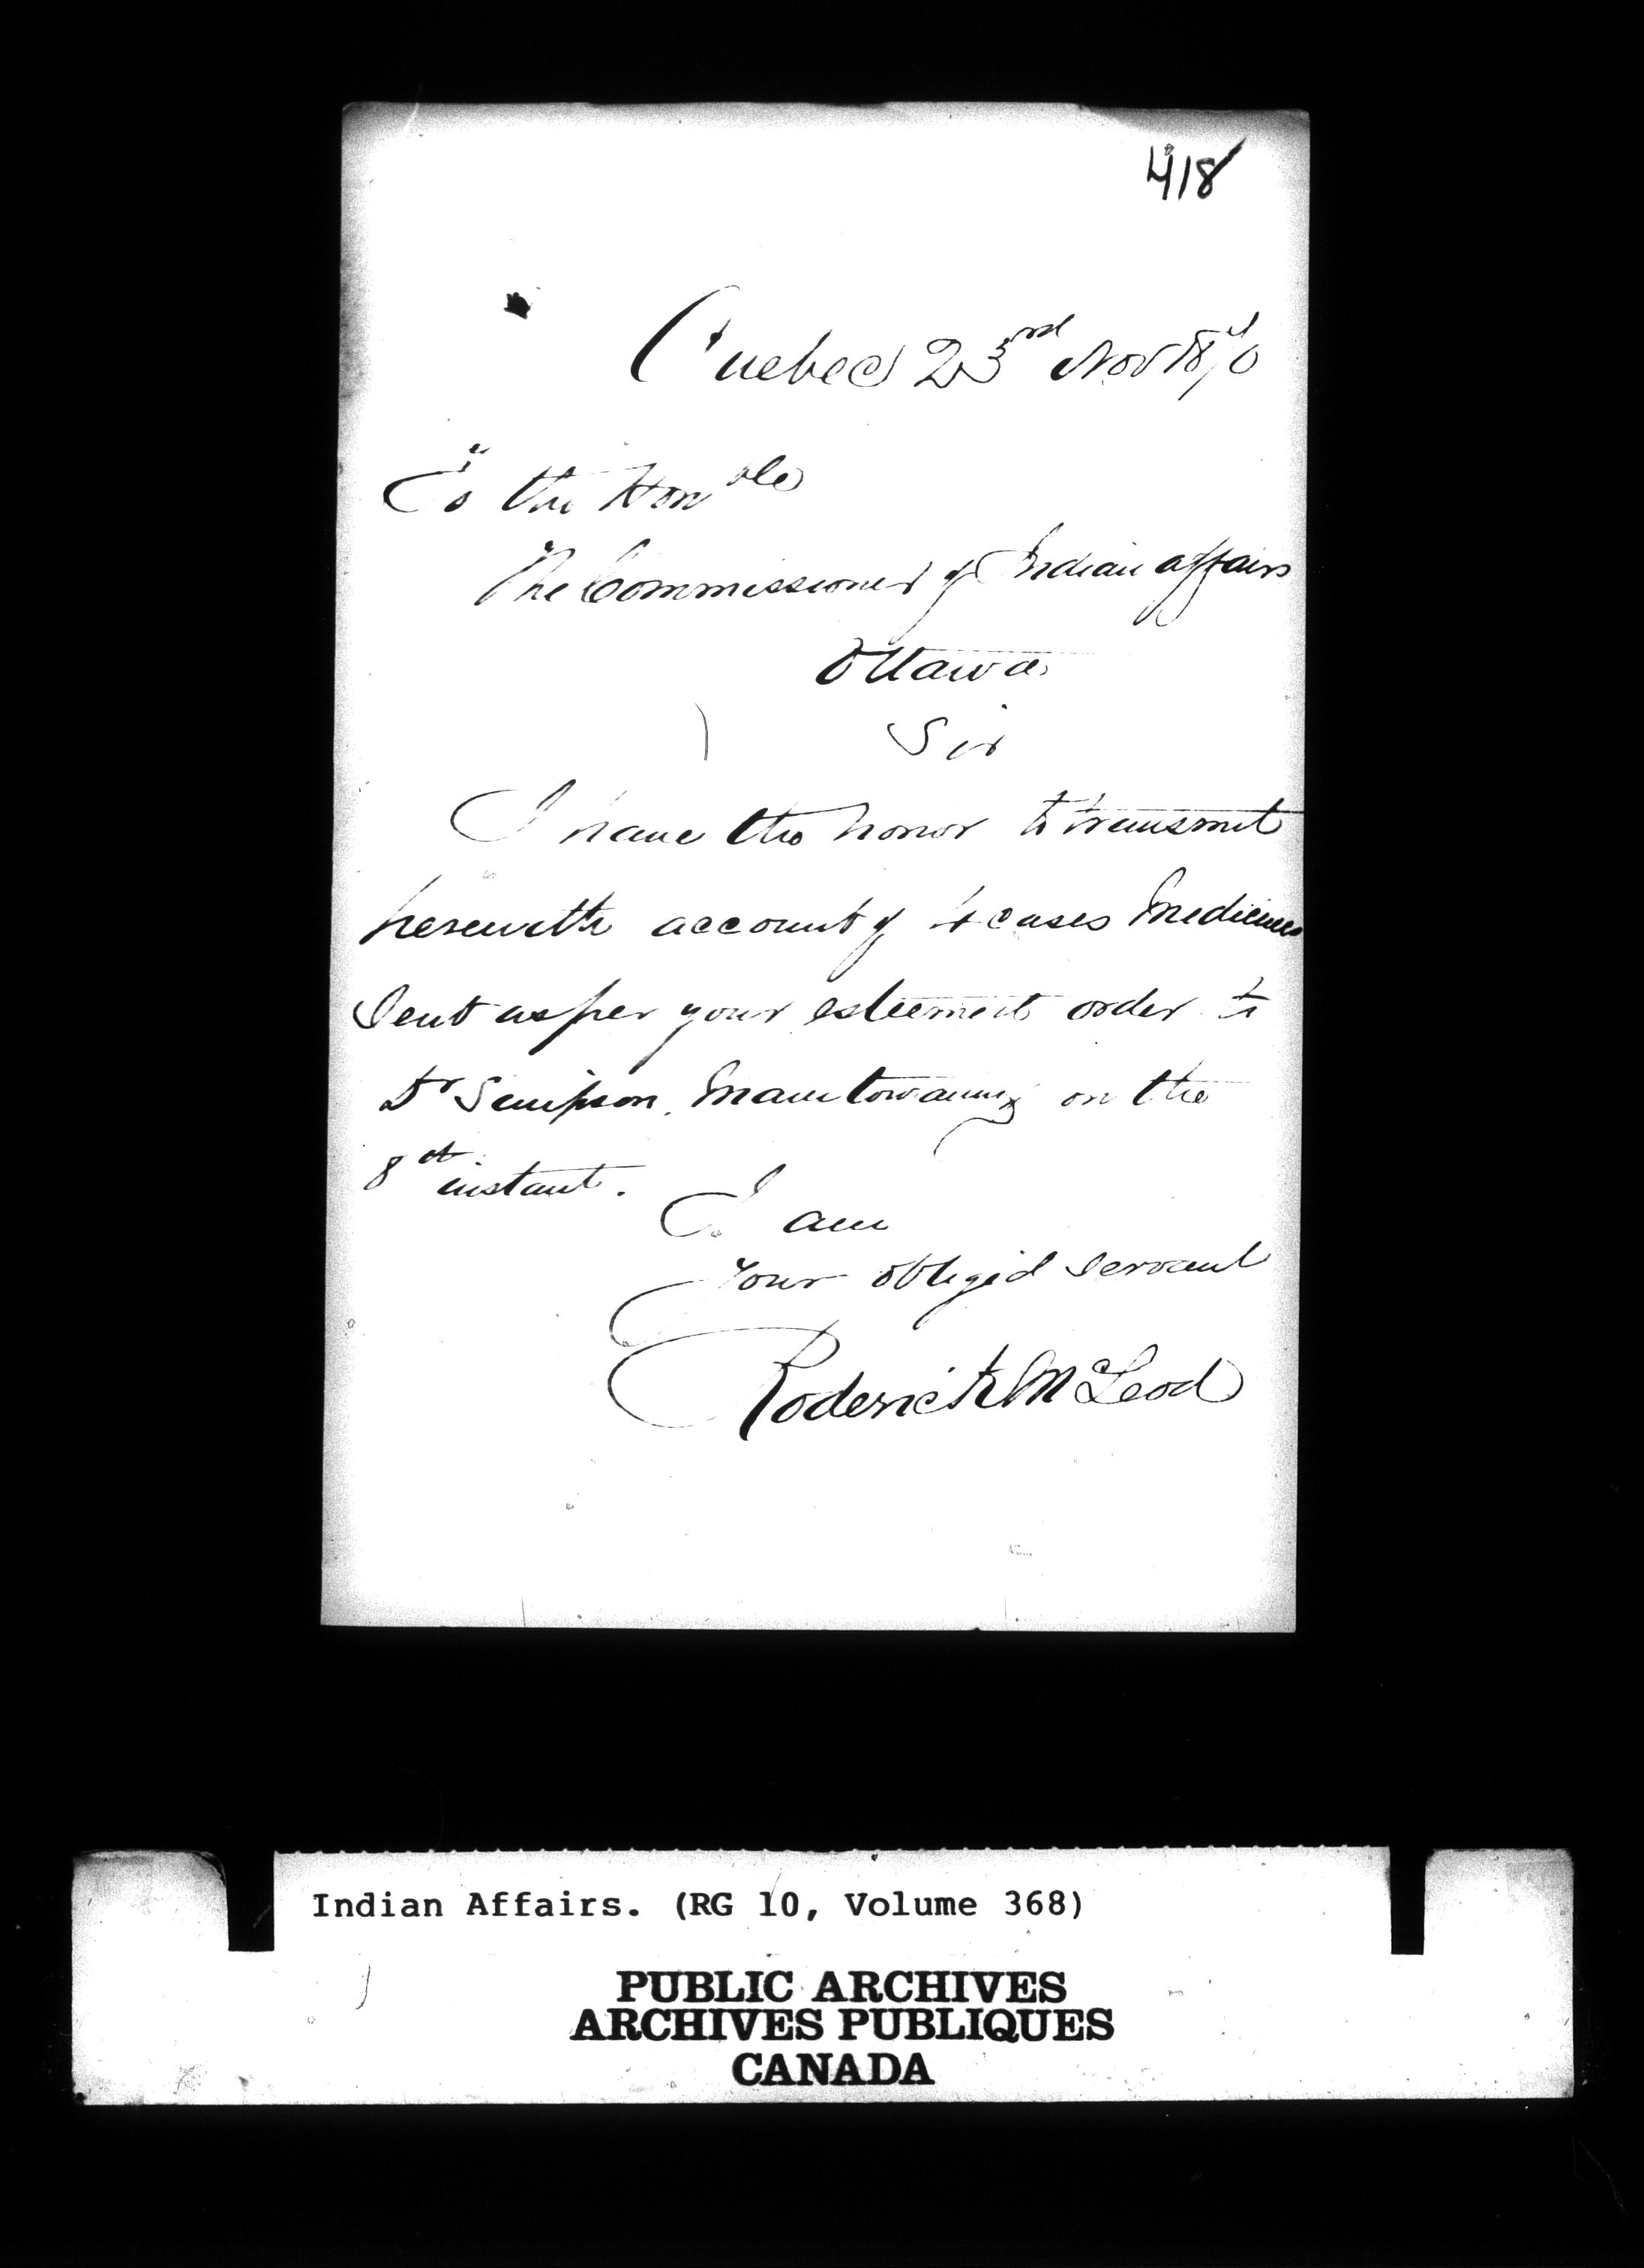 418
Quebec 23rd Nov 1870
To the Honble
The Commissioner of Indian affairs
Ottawa
Sir
I have the honor to transmit
herewith account of 4 cases Medicines
Sent as per your esteemed order to
Dr Simpson, Manitowaning on the
8th instant.
I am
Your obliged Servant
Roderick McLeod
Indian Affairs. (RG 10, Volume 368)
PUBLIC ARCHIVES
ARCHIVES PUBLIQUES
CANADA